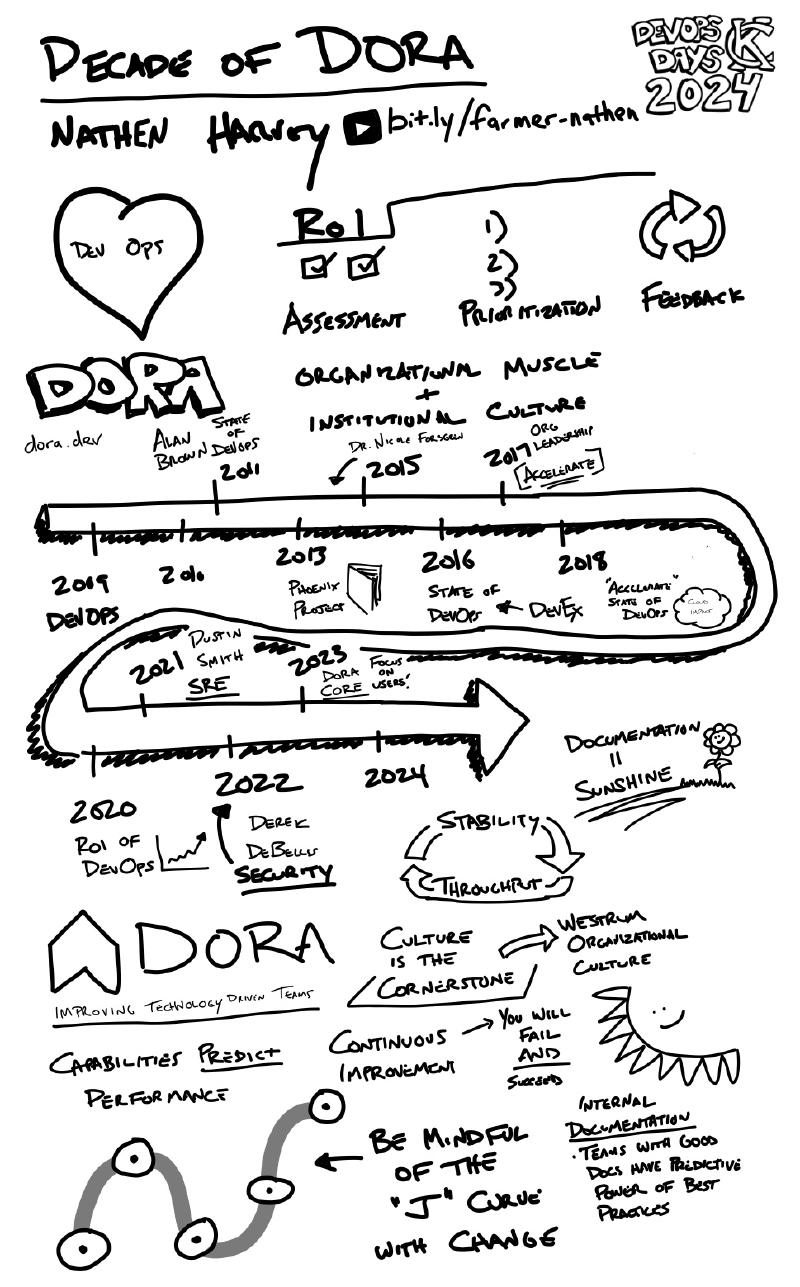 DECADE OF DORA
DEVOPS
DAYS KC
2024
NATHEN HARVEY bit.ly/farmer-nathen
DEV OPS
ROI
1)
2)
3)
ASSESSMENT
PRIORITIZATION
FEEDBACK
DORA
dora.dev
ORGANIZATIONAL MUSCLE
+
INSTITUTIONAL CULTURE
ALAN
BROWN
STATE
OF
DEVOPS
2011
DR. NICOLE FORSGREN
2015
2017
ORG
LEADERSHIP
[ACCELERATE]
2009
DEVOPS
2010
2013
PHOENIX
PROJECT
2016
STATE OF
DEVOPS
DEVEX
2018
"ACCELERATE"
STATE OF
DEVOPS
CLOUD
IMPACT
2021
DUSTIN
SMITH
SRE
2023
DORA
CORE
FOCUS
ON
USERS!
2020
ROI OF
DEVOPS
2022
DEREK
DEBELLIS
SECURITY
2024
DOCUMENTATION
=
SUNSHINE
STABILITY
THROUGHPUT
DORA
IMPROVING TECHNOLOGY DRIVEN TEAMS
CULTURE
IS THE
CORNERSTONE
WESTRUM
ORGANIZATIONAL
CULTURE
CONTINUOUS
IMPROVEMENT
YOU WILL
FAIL
AND
SUCCEED
CAPABILITIES PREDICT
PERFORMANCE
INTERNAL
DOCUMENTATION
• TEAMS WITH GOOD
DOCS HAVE PREDICTIVE
POWER OF BEST
PRACTICES
BE MINDFUL
OF THE
"J" CURVE
WITH CHANGE